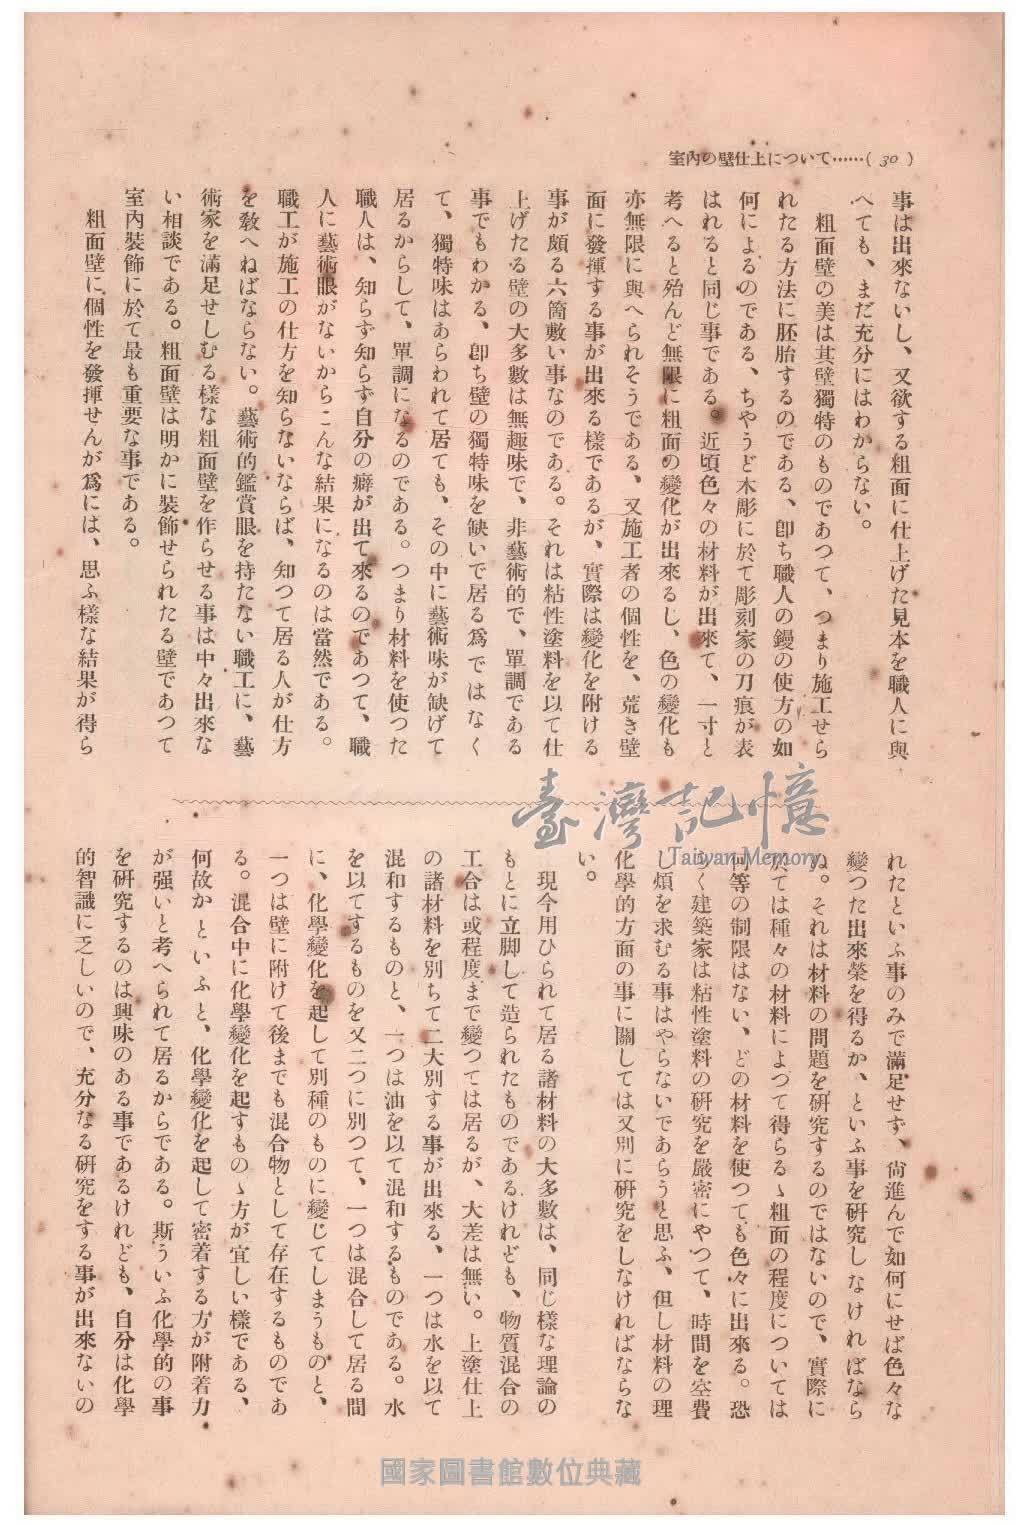 室內の壁仕上について……( 30 )
事は出來ないし、又欲する粗面に仕上げた見本を職人に與
へても、まだ充分にはわからない。
粗面壁の美は其壁獨特のものであつて、つまり施工せら
れたる方法に胚胎するのである、卽ち職人の鏝の使方の如
何によるのである、ちやうど木彫に於て彫刻家の刀痕が表
はれると同じ事である。近頃色々の材料が出來て、一寸と
考へると殆んど無限に粗面の變化が出來るし、色の變化も
亦無限に與へられそうである、又施工者の個性を、荒き壁
面に發揮する事が出來る樣であるが、實際は變化を附ける
事が頗る六箇敷い事なのである。それは粘性塗料を以て仕
上げたる壁の大多數は無趣味で、非藝術的で、單調である
事でもわかる、卽ち壁の獨特味を缺いで居る爲ではなく
て、獨特味はあらわれて居ても、その中に藝術味が缺げて
居るからして、單調になるのである。つまり材料を使つた
職人は、知らず知らず自分の癖が出て來るのであつて、職
人に藝術眼がないからこんな結果になるのは當然である。
職工が施工の仕方を知らないならば、知つて居る人が仕方
を敎へねばならない。藝術的鑑賞眼を持たない職工に、藝
術家を滿足せしむる樣な粗面壁を作らせる事は中々出來な
い相談である。粗面壁は明かに裝飾せられたる壁であつて
室內裝飾に於て最も重要な事である。
粗面壁に個性を發揮せんが爲には、思ふ樣な結果が得ら
れたといふ事のみで滿足せず、尙進んで如何にせば色々な
變つた出來榮を得るか、といふ事を硏究しなければなら
ぬ。それは材料の問題を硏究するのではないので、實際に
於ては種々の材料によつて得らるゝ粗面の程度については
何等の制限はない、どの材料を使つても色々に出來る。恐
らく建築家は粘性塗料の硏究を嚴密にやつて、時間を空費
し煩を求むる事はやらないであらうと思ふ、但し材料の理
化學的方面の事に關しては又別に硏究をしなければならな
い。
現今用ひられて居る諸材料の大多數は、同じ樣な理論の
もとに立脚して造られたものであるけれども、物質混合の
工合は或程度まで變つては居るが、大差は無い。上塗仕上
の諸材料を別ちて二大別する事が出來る、一つは水を以て
混和するものと、一つは油を以て混和するものである。水
を以てするものを又二つに別つて、一つは混合して居る間
に、化學變化を起して別種のものに變じてしまうものと、
一つは壁に附けて後までも混合物として存在するものであ
る。混合中に化學變化を起すものゝ方が宜しい樣である、
何故かといふと、化學變化を起して密着する方が附着力
が强いと考へられて居るからである。斯ういふ化學的の事
を硏究するのは興味のある事であるけれども、自分は化學
的智識に乏しいので、充分なる硏究をする事が出來ないの
臺灣記憶
Taiwan Memory
國家圖書館數位典藏